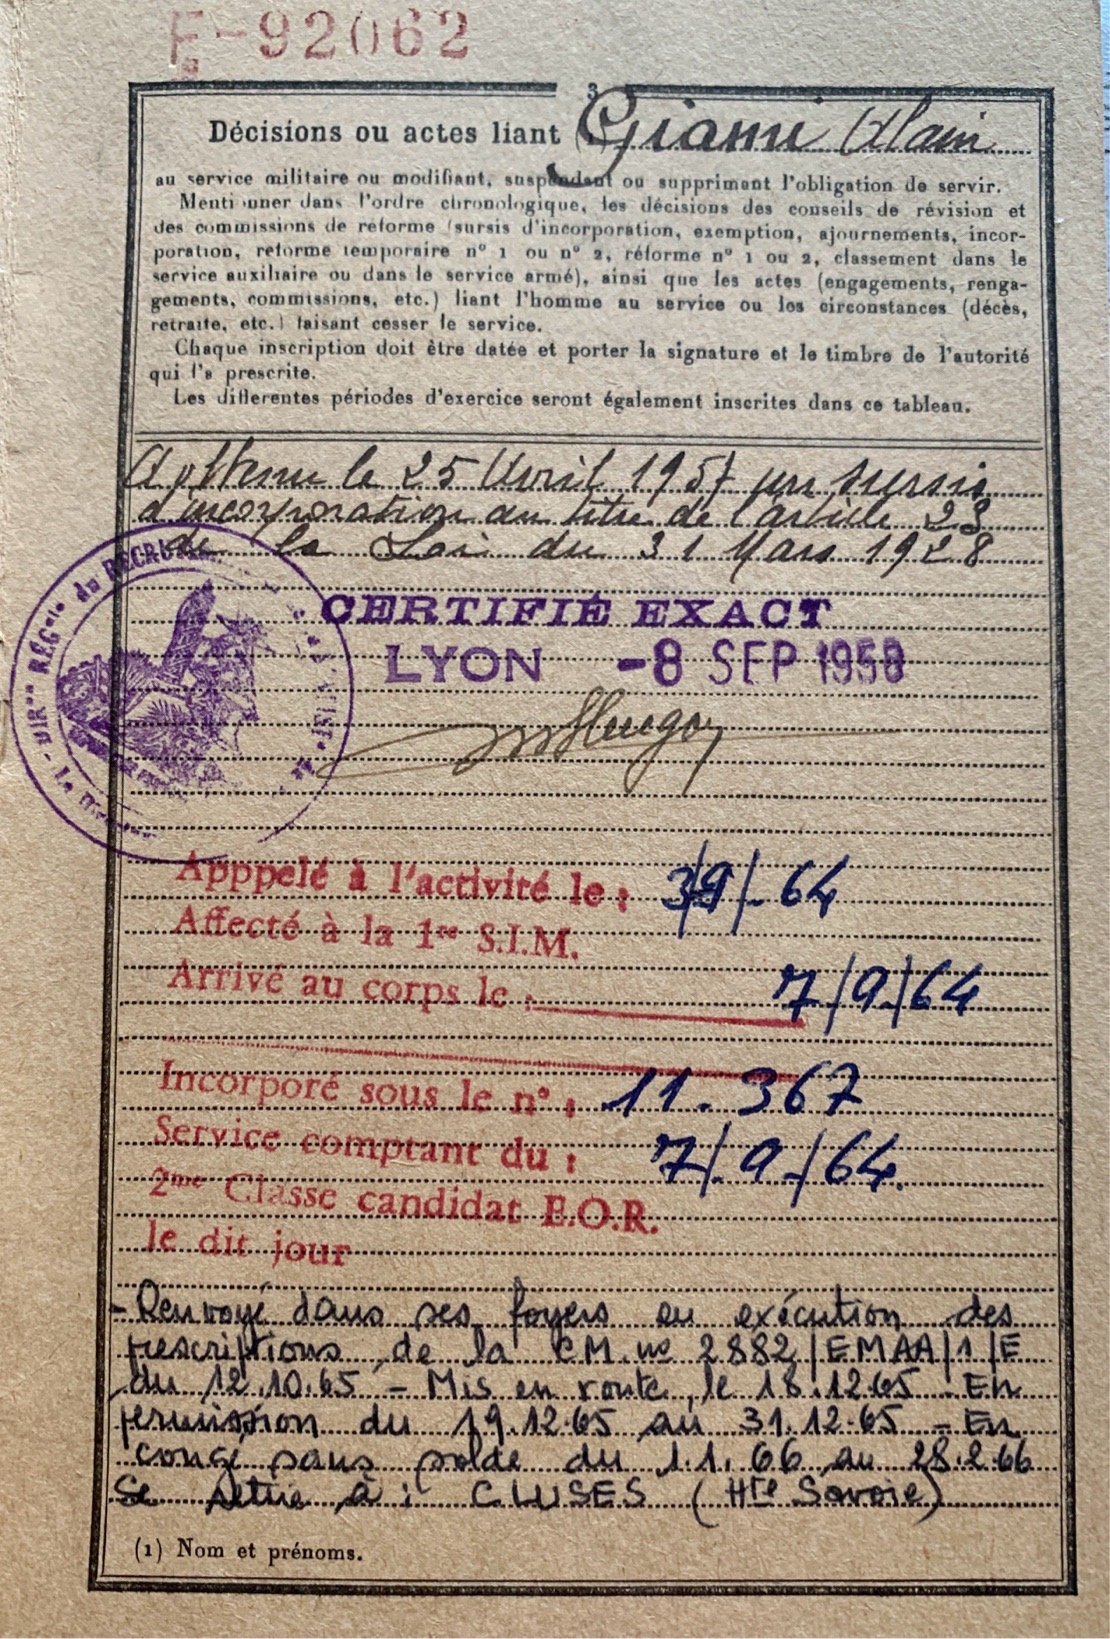 F-92062
3
Décisions ou actes liant (1) Giami Alain
au service militaire ou modifiant, suspendant ou supprimant l'obligation de servir.
Mentionner dans l'ordre chronologique, les décisions des conseils de révision et
des commissions de réforme (sursis d'incorporation, exemption, ajournements, incor-
poration, réforme temporaire n° 1 ou n° 2, réforme n° 1 ou 2, classement dans le
service auxiliaire ou dans le service armé), ainsi que les actes (engagements, renga-
gements, commissions, etc.) liant l'homme au service ou les circonstances (décès,
retraite, etc.) faisant cesser le service.
Chaque inscription doit être datée et porter la signature et le timbre de l'autorité
qui l'a prescrite.
Les différentes périodes d'exercice seront également inscrites dans ce tableau.
A obtenu le 25 Avril 1957 un sursis
d'incorporation au titre de l'article 23
de la Loi du 31 Mars 1928
DIR RÉG du RECRUT
CERTIFIÉ EXACT
LYON -8 SEP 1958
Apppelé à l'activité le : 3/9/.64
Affecté à la 1re S.I.M.
Arrivé au corps le : 7/9/64
Incorporé sous le n° : 11.367
Service comptant du : 7/.9./64.
2me Classe candidat E.O.R.
le dit jour
- Renvoyé dans ses foyers en exécution des
prescriptions de la CM. no 2882/EMAA/1/E
du 12.10.65 - Mis en route le 18.12.65 - En
permission du 19.12.65 au 31.12.65 - En
congé sans solde du 1.1.66 au 28.2.66
Se retire à : CLUSES (Hte Savoie)
(1) Nom et prénoms.